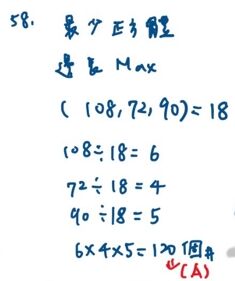 58. 最少正方體
邊長 Max
(108,72,90)=18
108÷18=6
72÷18=4
90÷18=5
6×4×5=120個#
(A)